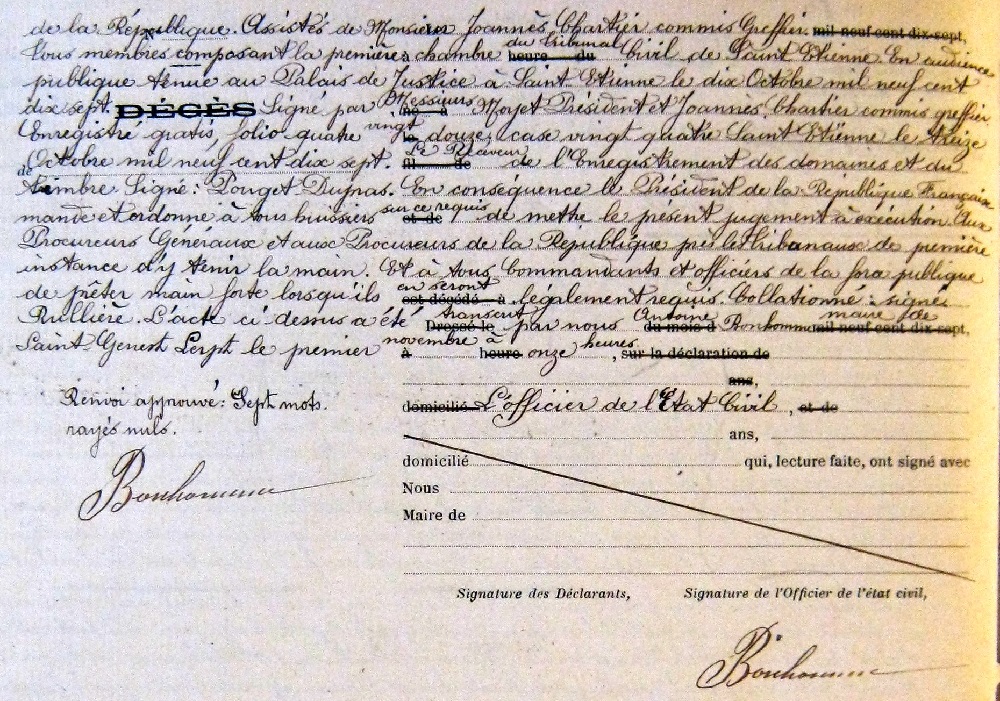 de la République. Assistés de Monsieur Joannès Chartier commis Greffier. mil neuf cent dix-sept,
Tous membres composant la première chambre du Tribunal heure du Civil de Saint Etienne En audience
publique tenue au Palais de Justice à Saint Etienne le dix Octobre mil neuf cent
dix sept. DÉCÈS Signé par Messieurs né à Mojet Président et Joannès Chartier commis greffier
Enregistré gratis, folio quatre vingt la douze, case vingt quatre Saint Etienne le treize
Octobre mil neuf cent dix sept. Le Receveur fil de de l'Enregistrement des domaines et du
de timbre. Signé : Pouget Dupras. En conséquence le Président de la République Française
mande et ordonne à tous huissiers sur ce requis et de de mettre le présent jugement à exécution. Aux
Procureurs Généraux et aux Procureurs de la République près les tribunaux de première
instance d'y tenir la main. Et à tous Commandants et officiers de la force publique
de prêter main forte lorsqu'ils en seront est décédé à légalement requis. Collationné : signé
Rullière. L'acte ci dessus a été transcrit Dressé le par nous Antoine du mois d Bonhomme maire de mil neuf cent dix-sept,
Saint Genest Lerpt le premier novembre à à heure onze heures, sur la déclaration de
ans,
Renvoi approuvé : Sept mots.
rayés nuls.
Bonhomme
domicilié L'officier de l'Etat Civil, et de
ans,
domicilié qui, lecture faite, ont signé avec
Nous
Maire de
Signature des Déclarants, Signature de l'Officier de l'état civil,
Bonhomme